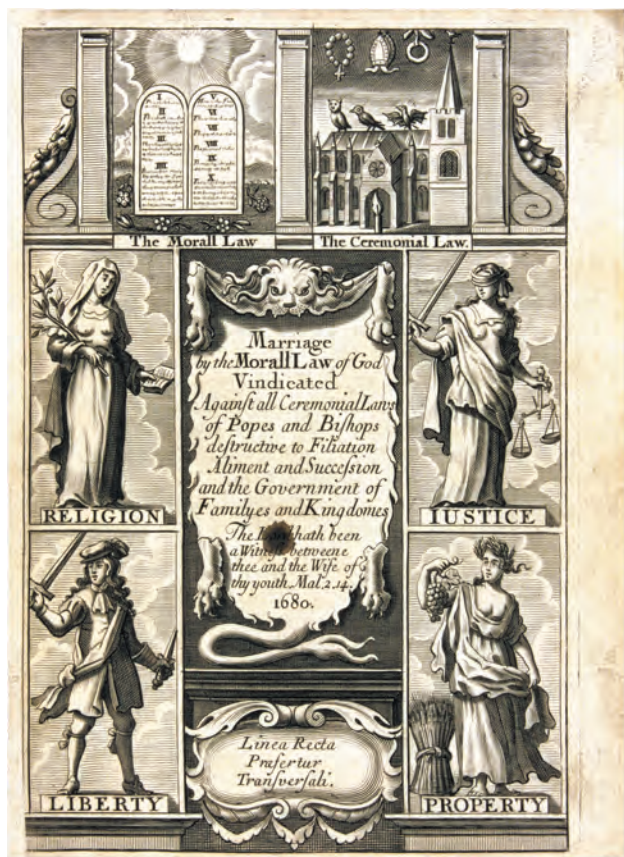 I
II
III
IIII
V
VI
VII
VIII
IX
X
The Morall Law
The Ceremonial Law.
RELIGION
Marriage
by the Morall Law of God
Vindicated
Against all Ceremonial Laws
of Popes and Bishops
destructive to Filiation
Aliment and Succession
and the Government of
Familyes and Kingdomes
The hath been
a Witness betweene
thee and the Wife of
thy youth. Mal. 2. 14.
1680.
IUSTICE
LIBERTY
Linea Recta
Præfertur
Transversali.
PROPERTY